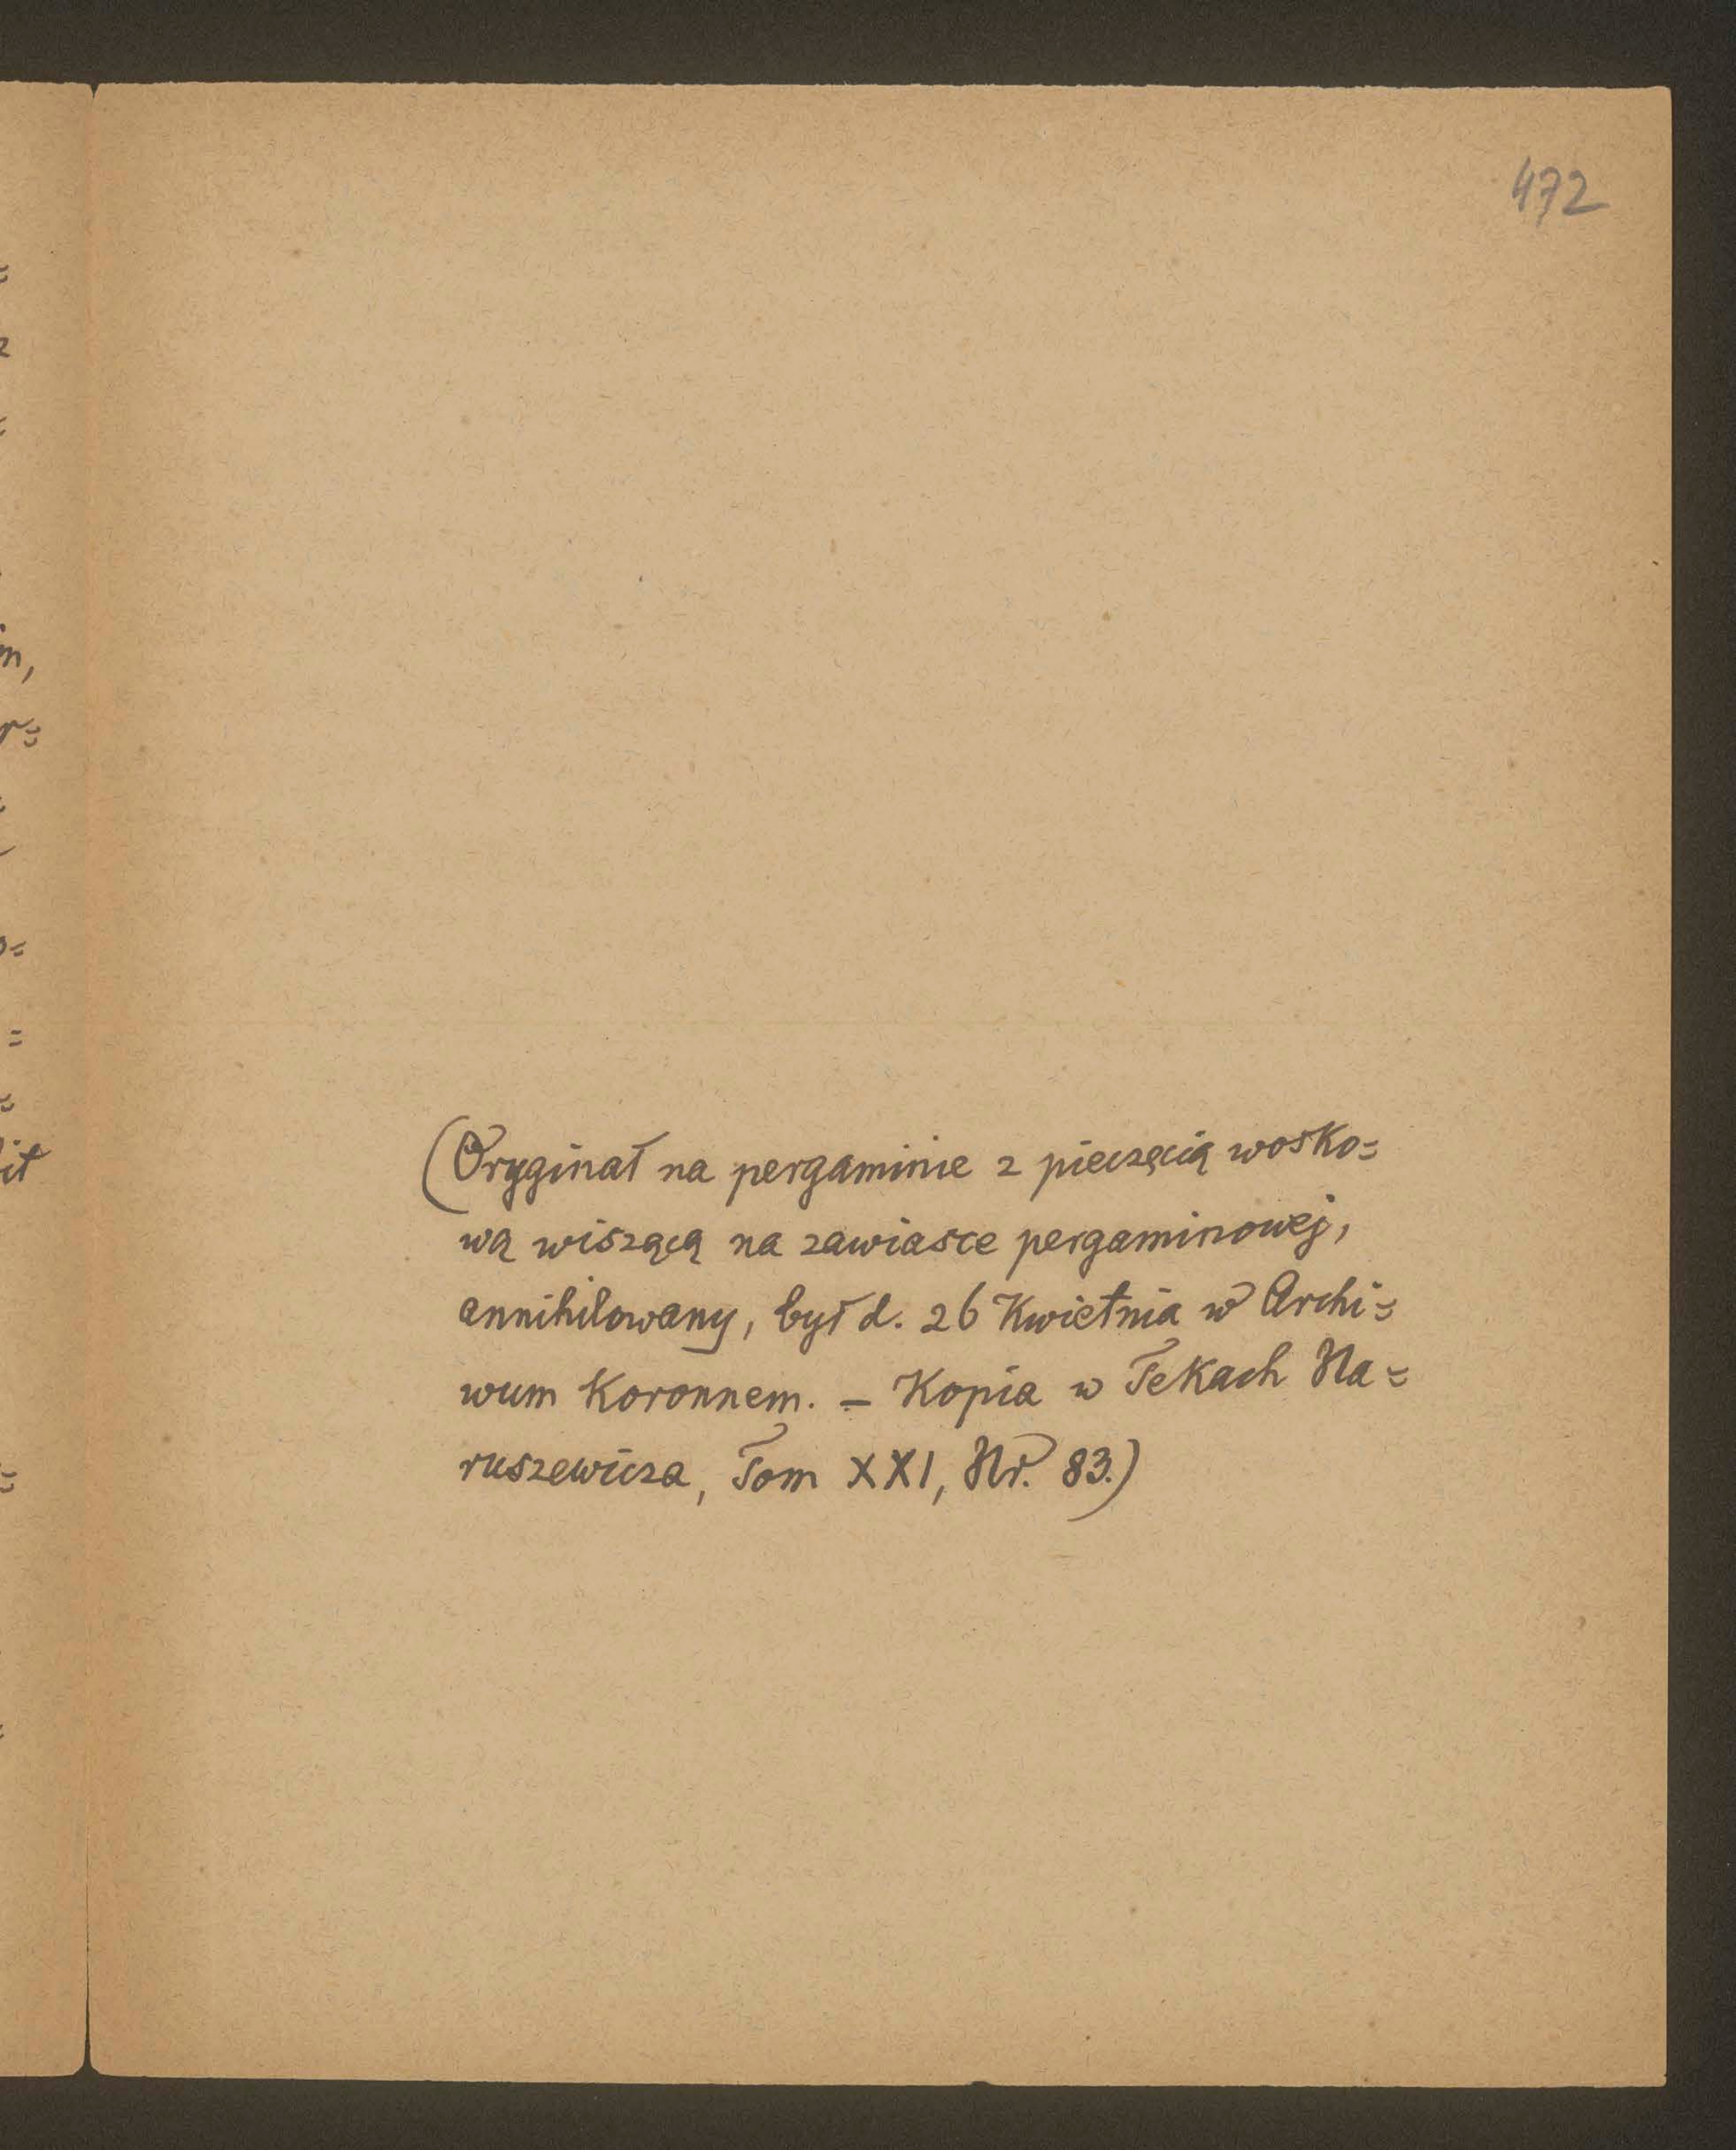 472
(Oryginał na pergaminie z pieczęcią wosko=
wą wiszącą na zawiasce pergaminowej,
annihilowany, był d. 26 Kwietnia w Archi=
wum Koronnem. – Kopia w Tekach Na=
ruszewicza, Tom XXI, Nr. 83.)